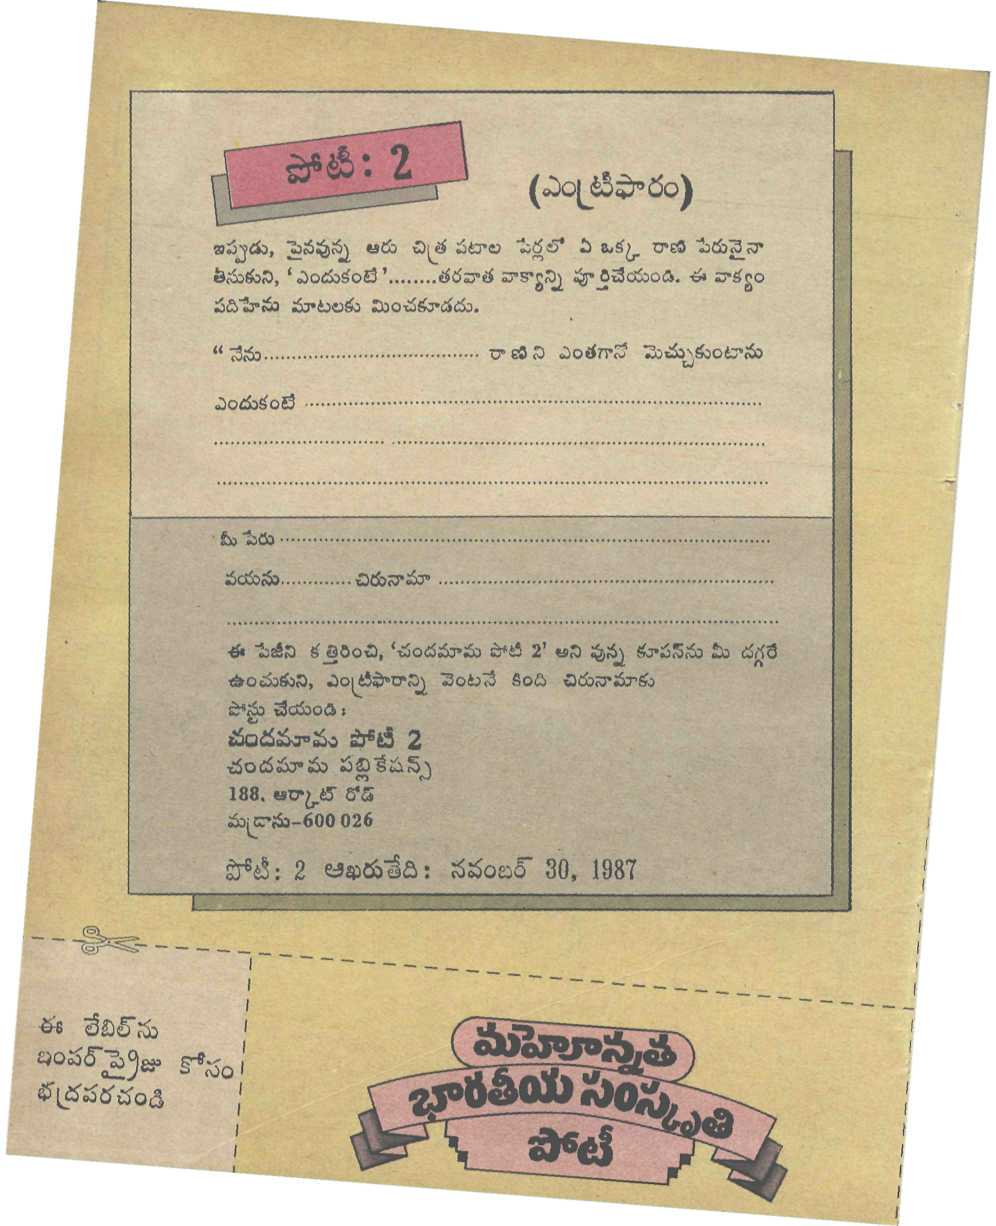 పోటీ: 2
(ఎంట్రీఫారం)
ఇప్పుడు, పైనవున్న ఆరు చిత్ర పటాల పేర్లలో ఏ ఒక్క రాణి పేరునైనా
తీసుకుని, ‘ఎందుకంటే’........తరవాత వాక్యాన్ని పూర్తిచేయండి. ఈ వాక్యం
పదిహేను మాటలకు మించకూడదు.
“నేను.................................... రాణిని ఎంతగానో మెచ్చుకుంటాను
ఎందుకంటే ............................................................................
............................ ..............................................................
............................................................................................
మీ పేరు ..................................................................................
వయసు............ చిరునామా ........................................................
............................................................................................
ఈ పేజీని కత్తిరించి, ‘చందమామ పోటీ 2’ అని వున్న కూపన్‌ను మీ దగ్గరే
ఉంచుకుని, ఎంట్రీఫారాన్ని వెంటనే కింది చిరునామాకు
పోస్టు చేయండి:
చందమామ పోటీ 2
చందమామ పబ్లికేషన్స్
188, ఆర్కాట్ రోడ్
మద్రాసు-600 026
పోటీ: 2 ఆఖరుతేది: నవంబర్ 30, 1987
ఈ లేబిల్‌ను
బంపర్ ప్రైజు కోసం
భద్రపరచండి
మహోన్నత
భారతీయ సంస్కృతి
పోటీ